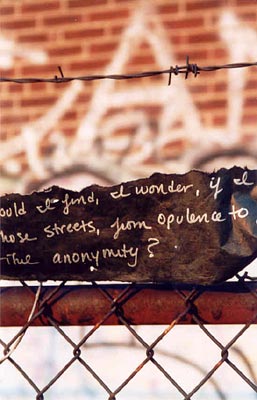 ould I find, I wonder, if I
hose streets, from opulence to
the anonymity?